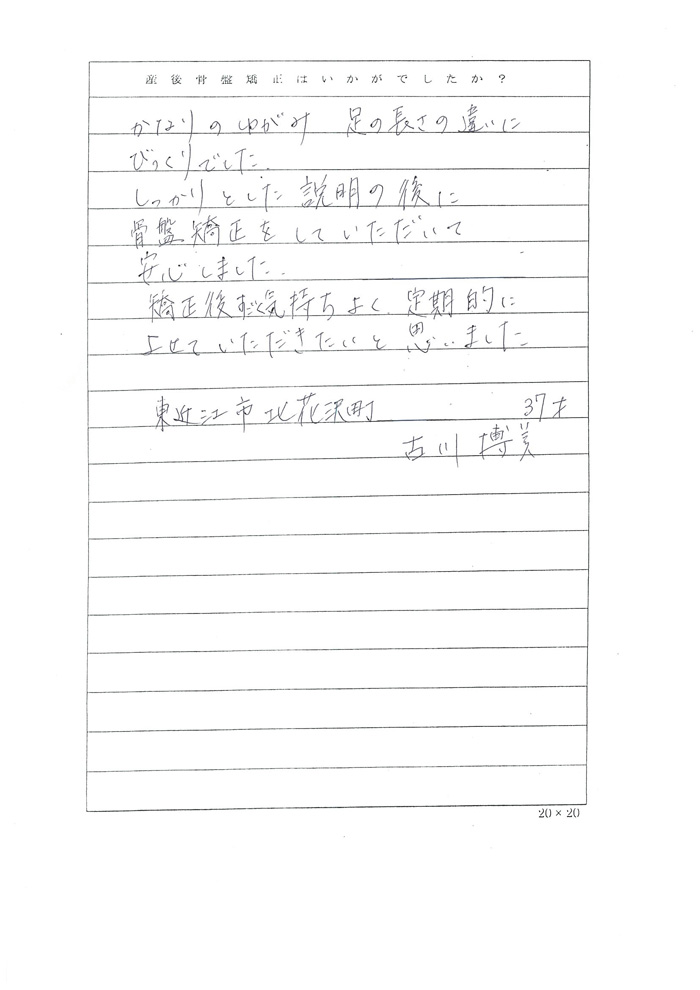 産後骨盤矯正はいかがでしたか?
かなりのゆがみ 足の長さの違いに
びっくりでした.
しっかりとした説明の後に
骨盤矯正をしていただいて
安心しました.
矯正後すごく気持ちよく、定期的に
よせていただきたいと思いました
東近江市北花沢町 37才
古川博美
20×20